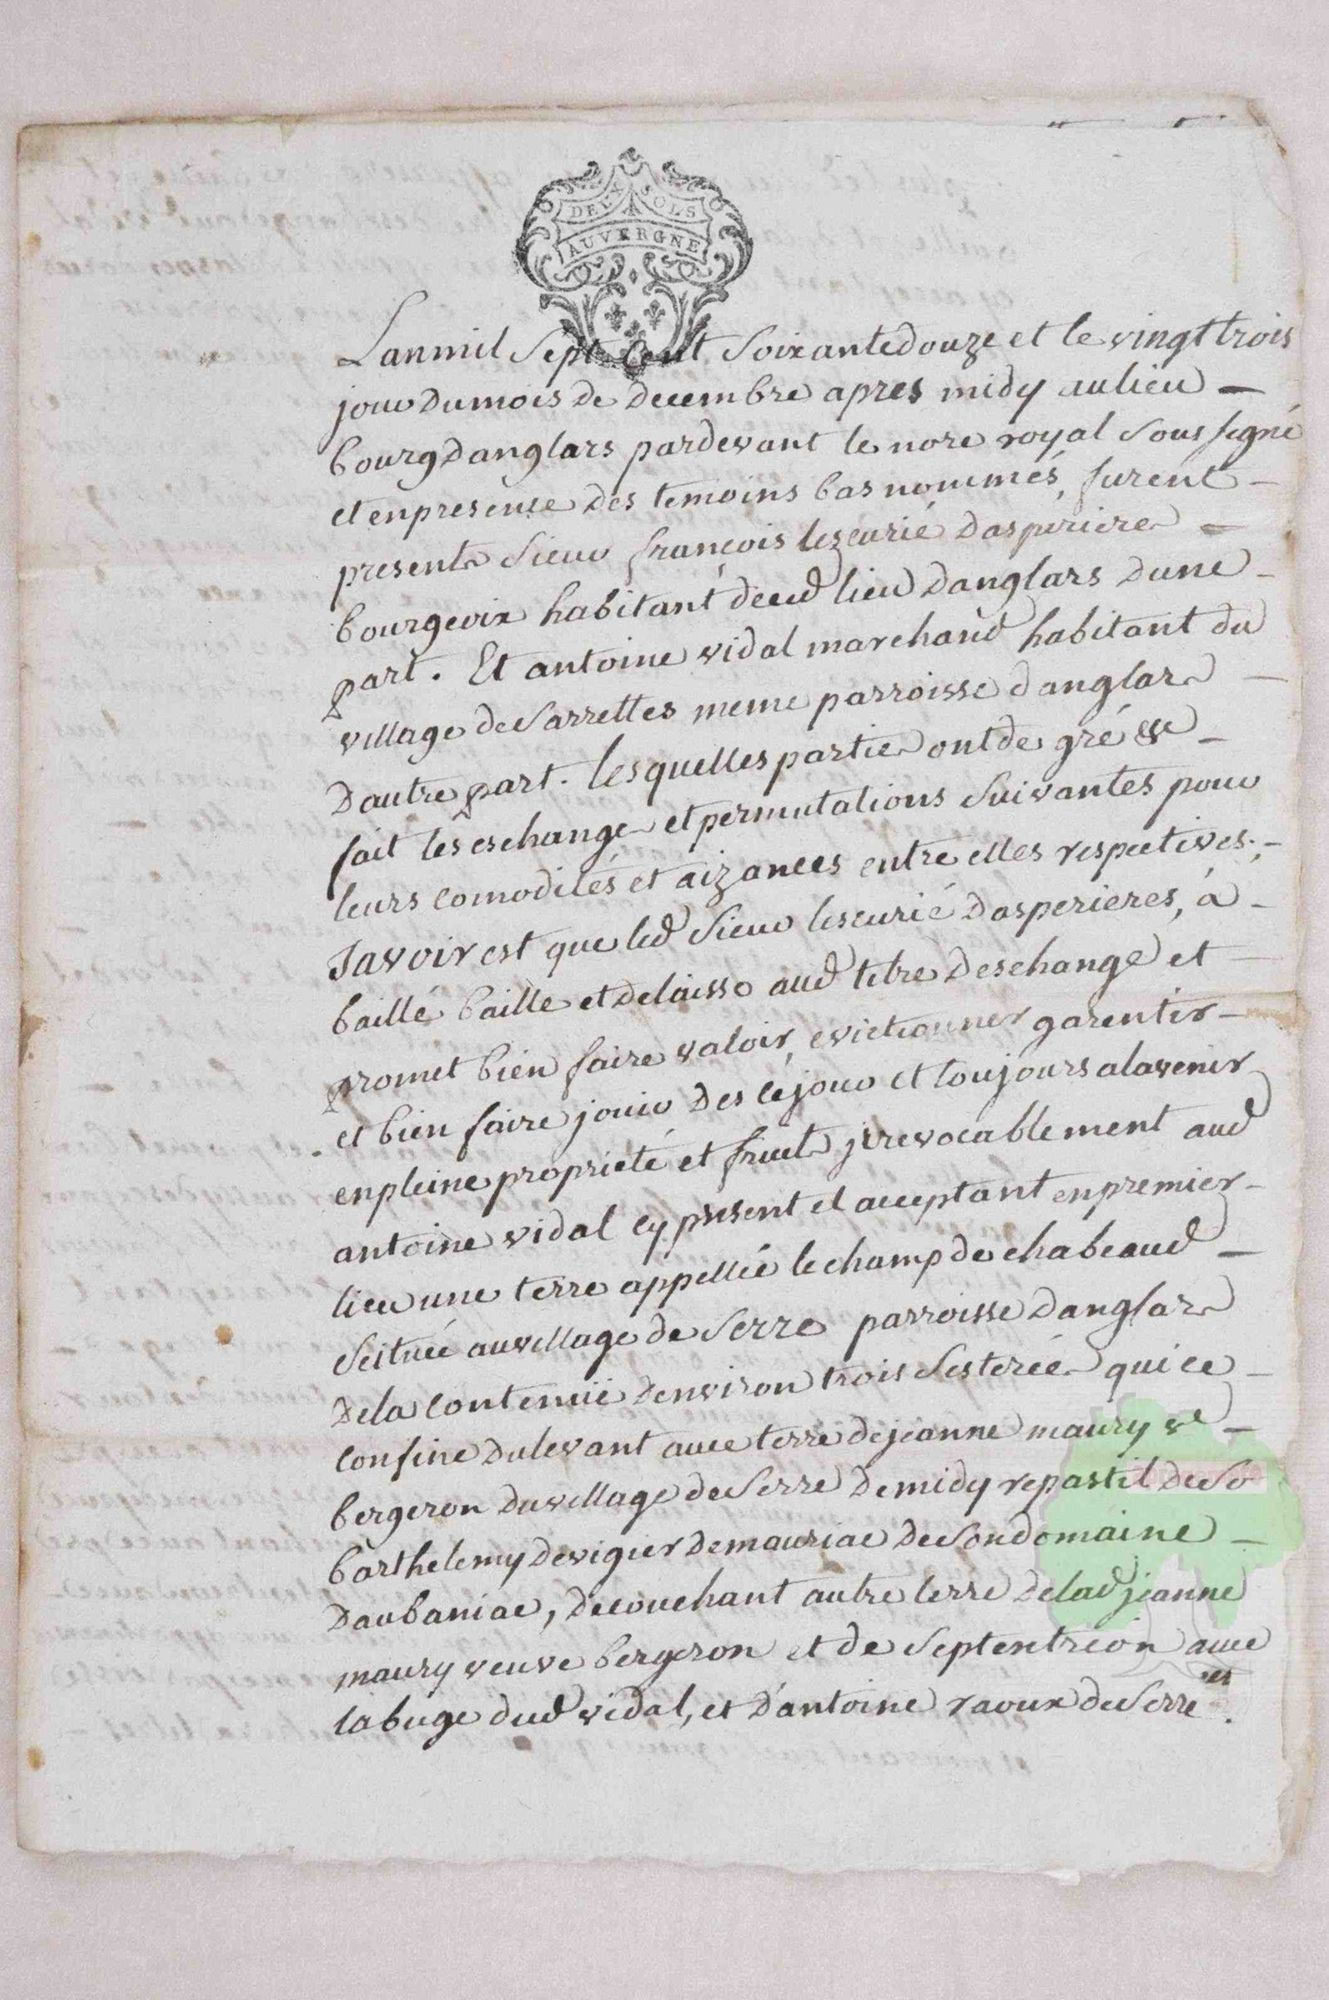 DEUX SOLS
AUVERGNE
Lanmil Sept Cent Soixante douze et le vingt trois
jour du mois de decembre apres midy au lieu
bourg danglars pardevant le nore royal Sous signé
et en presence des temoins bas nommés, furent
present Sieur françois lescurié dasperiere
bourgeoix habitant decud lieu danglars dune
part. Et antoine vidal marchand habitant du
village de Sarrettes meme parroisse danglar
dautre part. lesquelles partie ont de gré &c
fait les eschange et permutations Suivantes pour
leurs comodités et aizances entre elles respectives;
Savoir est que led Sieur lescurié dasperieres, à
baillé baille et delaisse aud titre deschange et
promet bien faire valoir, evictionner garentir
et bien faire jouir des ce jour et toujours alavenir
en pleine proprieté et fruit jrrevocablement aud
antoine vidal cy present et acceptant en premier
lieu une terre appellée le champ de chabeaud
Seituée au village de Serre parroisse danglar
dela contenüe denviron trois Sesterée qui ce
confine du levant avec terre de jeanne maury ve
bergeron du village de Serre de midy repastil de Sr
barthelemy de vigier de mauriac de Son domaine
daubaniac, de couchant autre terre delad jeanne
maury veuve bergeron et de Septentrion avec
la buge dud vidal, et d'antoine raoux de Serre